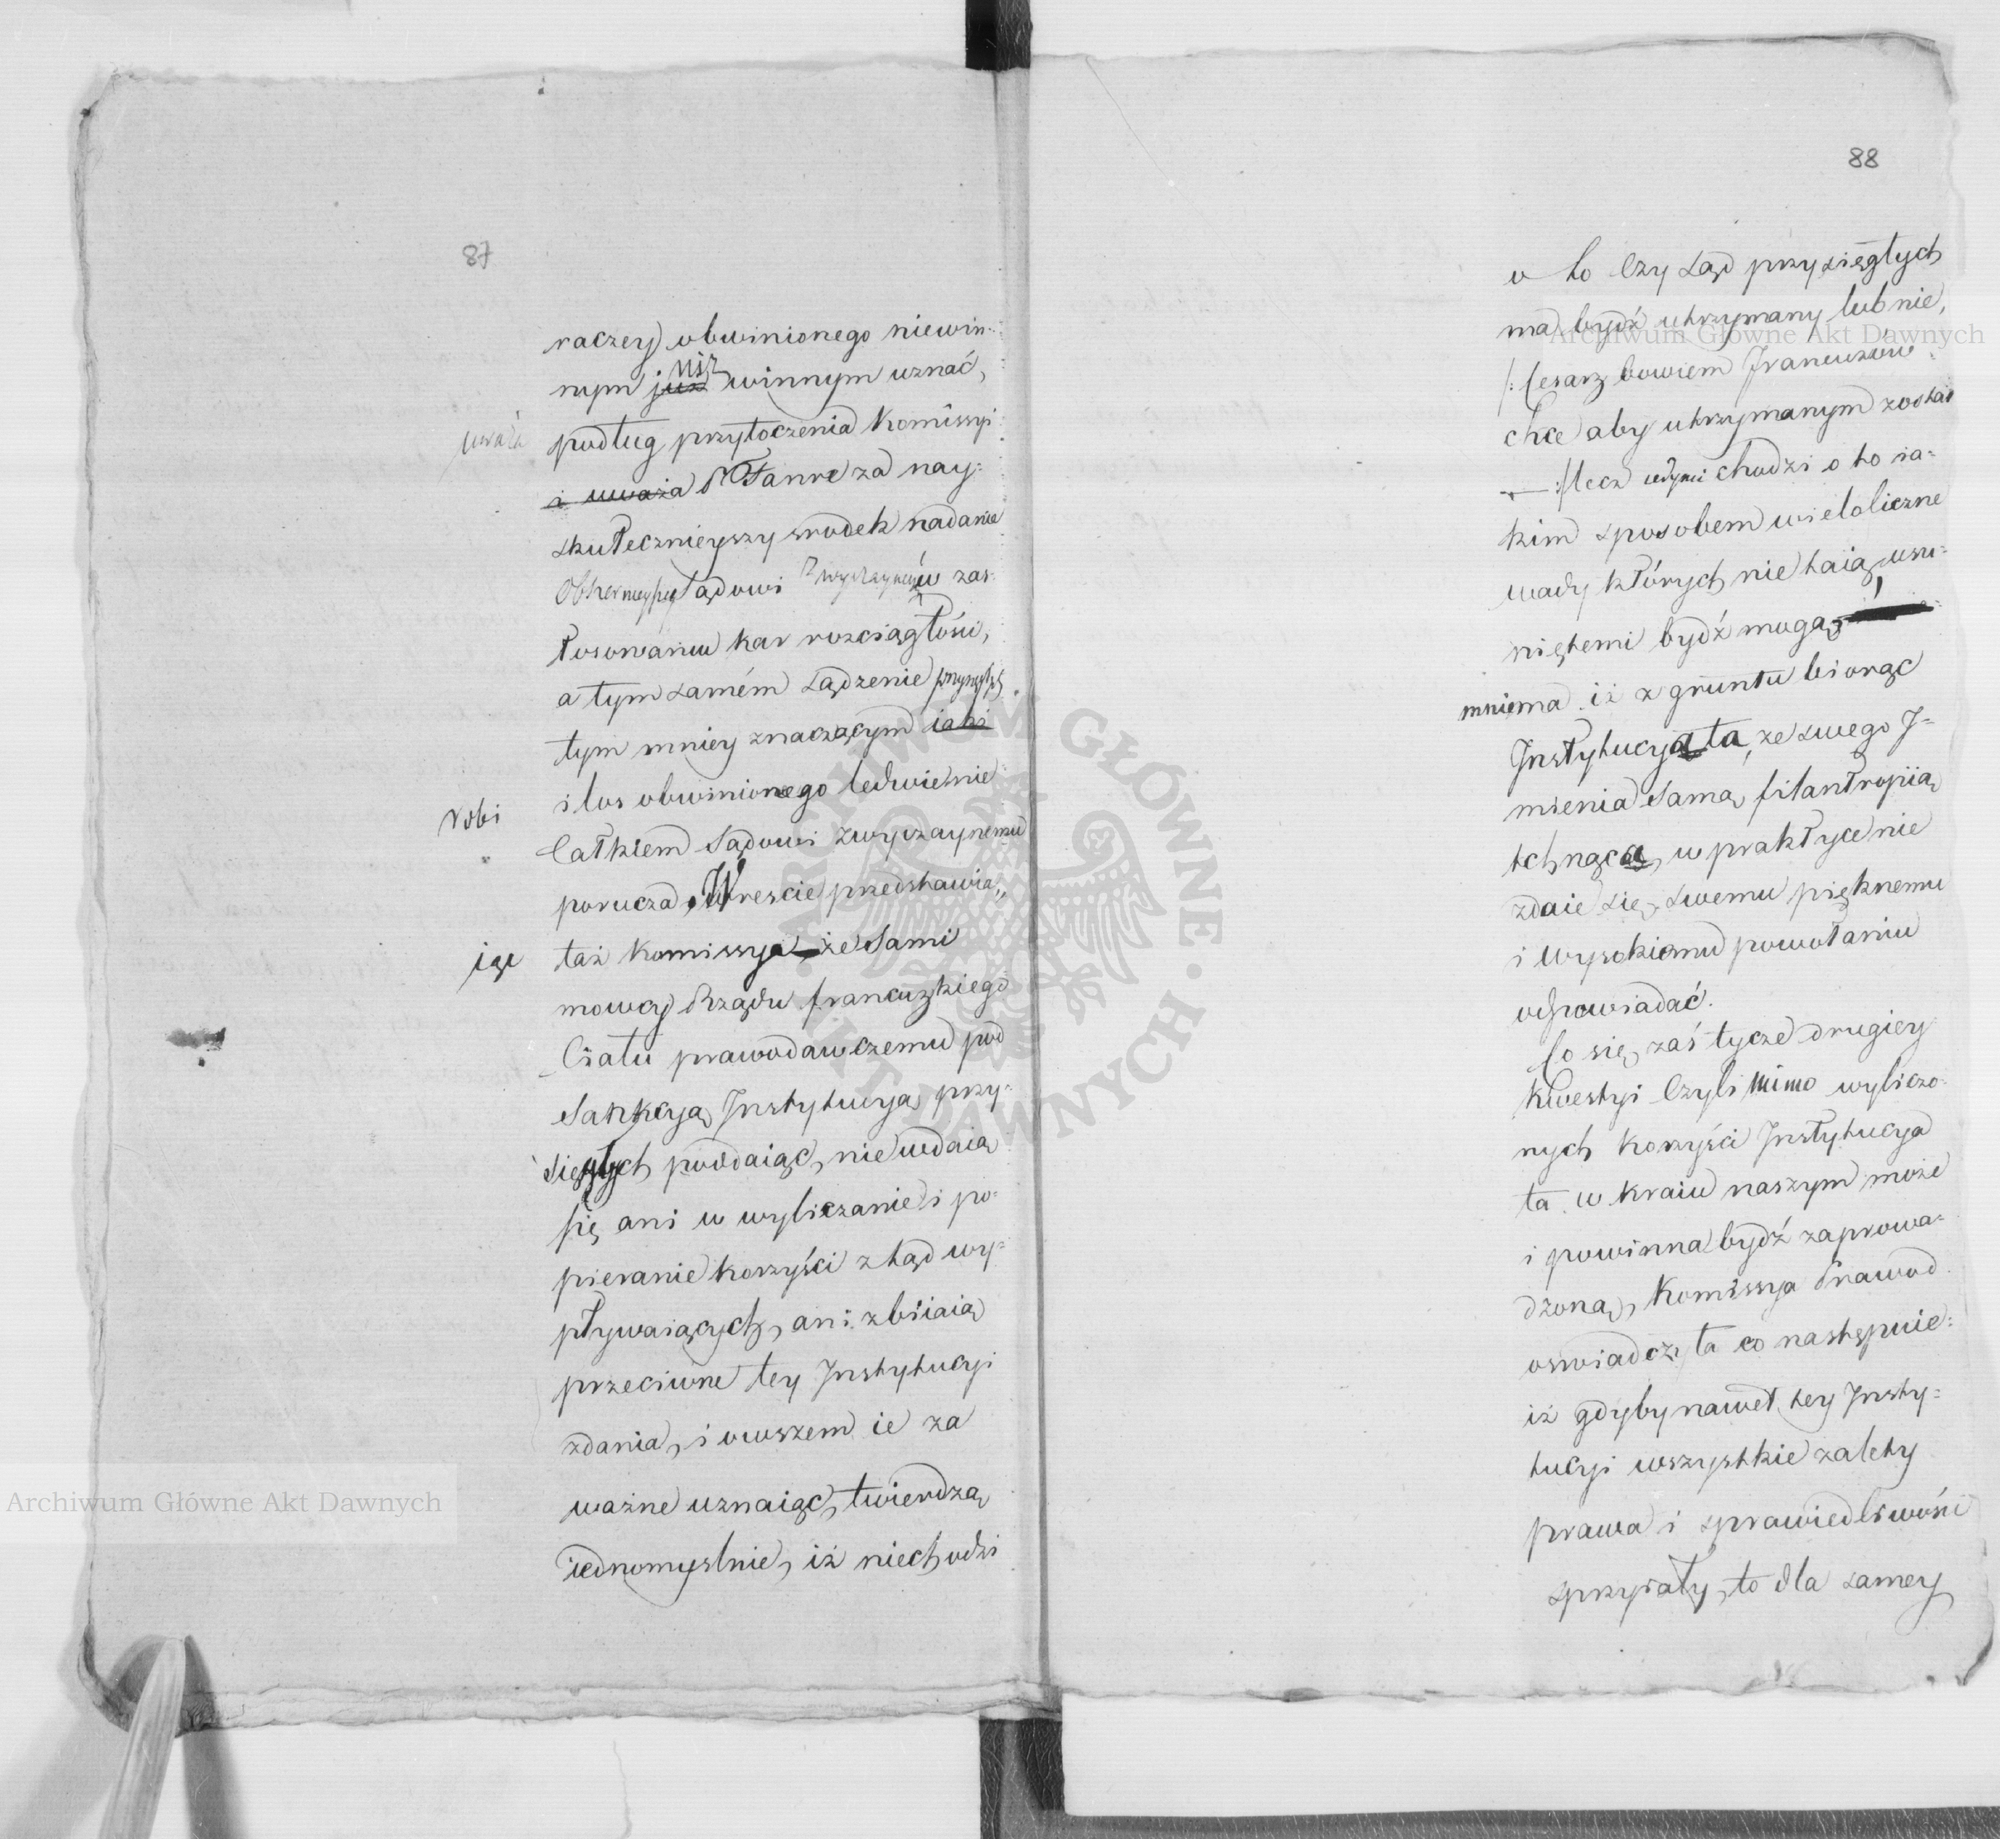 87
raczey obwinionego niewin-
nym już niż winnym uznać,
uważa
podług przytoczenia Komissyi
i uważa P. Fanre za nay-
skutecznieyszy srodek nadanie
Obszernieyszey Sądowi w zas-
tosowaniu kar rozciągłości,
a tym samém sądzenie przysięgłych
tym mniey znaczącym iaki
robi
i los obwinionego ledwie nie
całkiem Sądowi zwyczaynemu
porucza. Wreście przedstawia,
iąc
taż Komissya że sami
mowcy Rządu francuzkiego
Ciału prawodawczemu pod
Sankcyą Instytucyą przy-
sięgłych poddaiąc, nie wdaią
się ani w wyliczanie i po-
pieranie korzyści ztąd wy-
pływaiących, ani zbiiaią
przeciwne tey Instytucyi
zdania, i owszem ie za
ważne uznaiąc, twierdzą
iednomyslnie, iż nie chodzi
88
o to czy sąd przysięgłych
ma bydź utrzymany lub nie,
/: Cesarz bowiem Francuzów
chce aby utrzymanym został
:/ lecz iedynie chodzi o to ia-
kim sposobem wieloliczne
wady których nie taią, usu-
niętemi bydź mogą,
mniema iż z gruntu biorąc
Instytucya ta, ze swego I-
mienia samą filantropiią
tchnąca, w praktyce nie
zdaie się swemu pięknemu
i wysokiemu powołaniu
odpowiadać.
Co się zaś tycze drugiey
Kwestyi czyli mimo wyliczo-
nych korzyści Instytucya
ta w kraiu naszym może
i powinna bydź zaprowa-
dzoną, Komissya Prawod.
oswiadczyła co następuie:
iż gdyby nawet tey Insty-
tucyi wszystkie zalety
prawa i sprawiedliwości
sprzyiały, to dla samey
Archiwum Główne Akt Dawnych
Archiwum Główne Akt Dawnych
ARCHIWUM GŁÓWNE AKT DAWNYCH